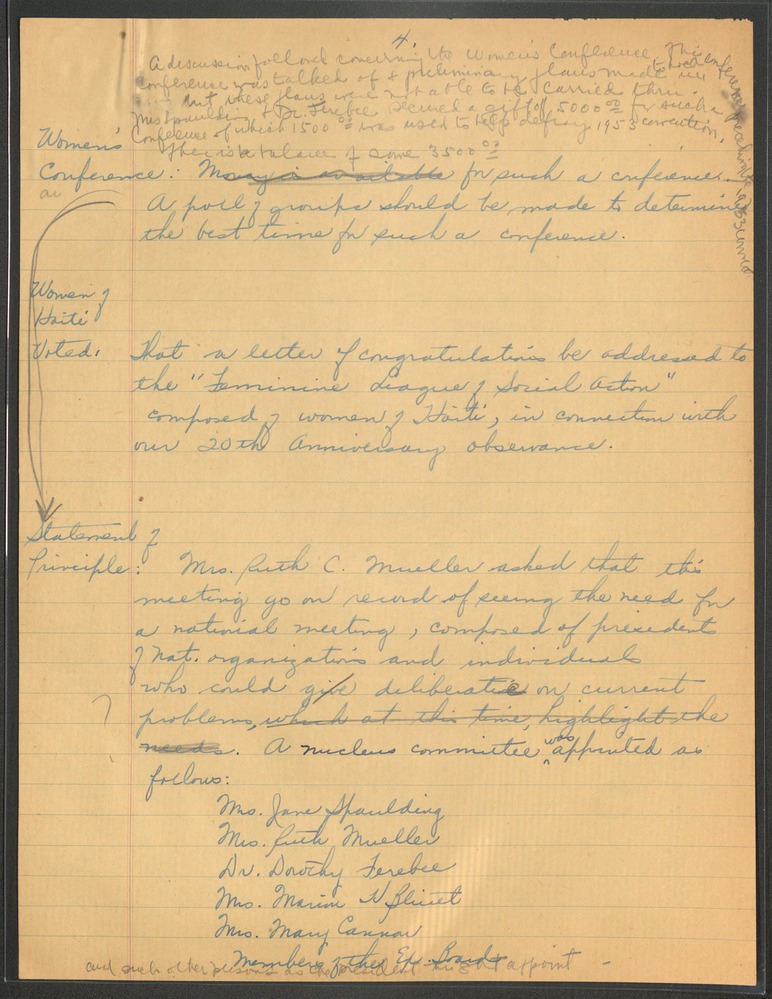 4.
A discussion followed concerning the Women's Conference. This
conference was talked of & preliminary plans made
but these plans were not able to be carried thru.
Mrs Spaulding & Dr. Ferebee secured a gift of 5000 00 for such a
Conference of which 1500 00 was used to help defray 1953 convention.
There is a balance of some 3500 00
Women's
Conference: Money is available for such a conference.
A poll of groups should be made to determine
the best time for such a conference.
Women of
Haiti
Voted: That a letter of congratulations be addressed to
the "Feminine League of Social Action"
composed of women of Haiti, in connection with
our 20th Anniversary observance.
Statement of
Principle: Mrs. Ruth C. Mueller asked that this
meeting go on record of seeing the need for
a national meeting, composed of presidents
of Nat. organizations and individuals
who could give deliberate on current
? problems, which at this time, highlight the
needs. A nucleus committee was appointed as
follows:
Mrs. Jane Spaulding
Mrs. Ruth Mueller
Dr. Dorothy Ferebee
Mrs. Marion
Mrs. Mary Cannon
Members of the Ex. Board
and such other persons as the president might appoint -